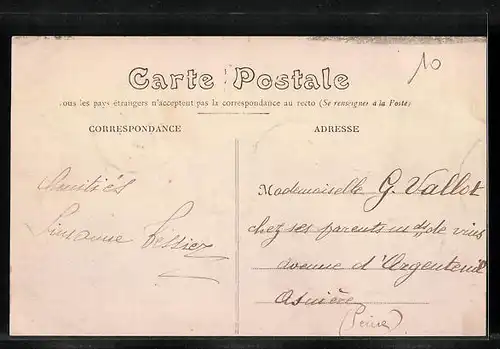 10
Carte Postale
ous les pays étrangers n'acceptent pas la correspondance au recto (Se renseigner à la Poste)
CORRESPONDANCE
ADRESSE
Amitiés
Suzanne Tessier
Mademoiselle G. Vallot
chez ses parents md de vins
avenue d'Argenteuil
Asnière
(Seine)